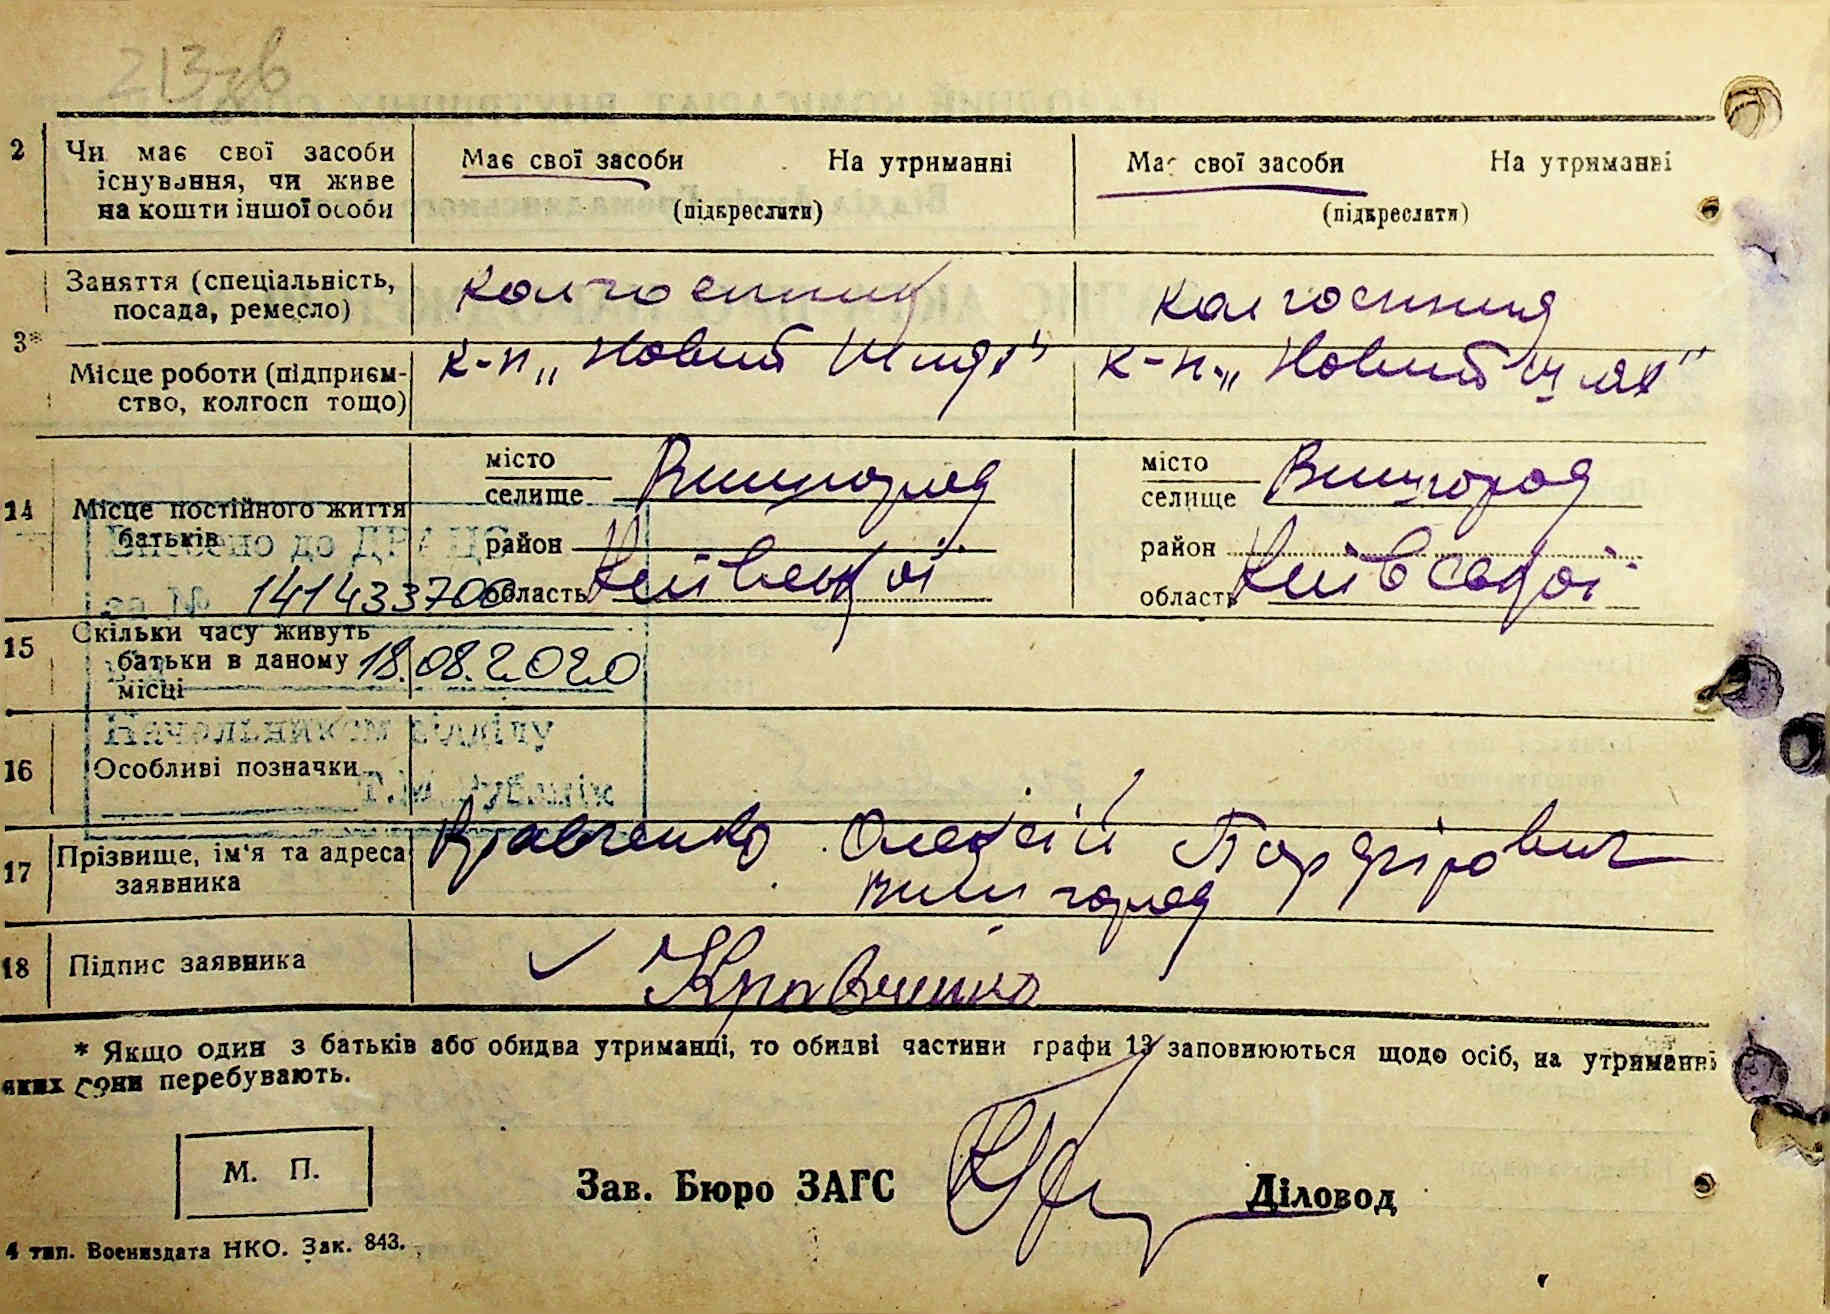 213зв
2 Чи має свої засоби існування, чи живе на кошти іншої особи
Має свої засоби На утриманні (підкреслити)
Має свої засоби На утриманні (підкреслити)
3*
Заняття (спеціальність, посада, ремесло)
колгоспник
колгоспниця
Місце роботи (підприємство, колгосп тощо)
к-п „Новий Шлях"
к-п „Новий Шлях"
14 Місце постійного життя батьків
місто селище Вишгород
район
область Київської
місто селище Вишгород
район
область Київської
Внесено до ДРАЦС
за № 141433700
15 Скільки часу живуть батьки в даному місці
18.08.2020
Начальником відділу
16 Особливі позначки
17 Прізвище, ім'я та адреса заявника
Кравченко Олексій Порфірович
Вишгород
18 Підпис заявника
Кравченко
* Якщо один з батьків або обидва утриманці, то обидві частини графи 13 заповнюються щодо осіб, на утриманні
яких вони перебувають.
М. П.
Зав. Бюро ЗАГС
Діловод
4 тип. Воениздата НКО. Зак. 843.